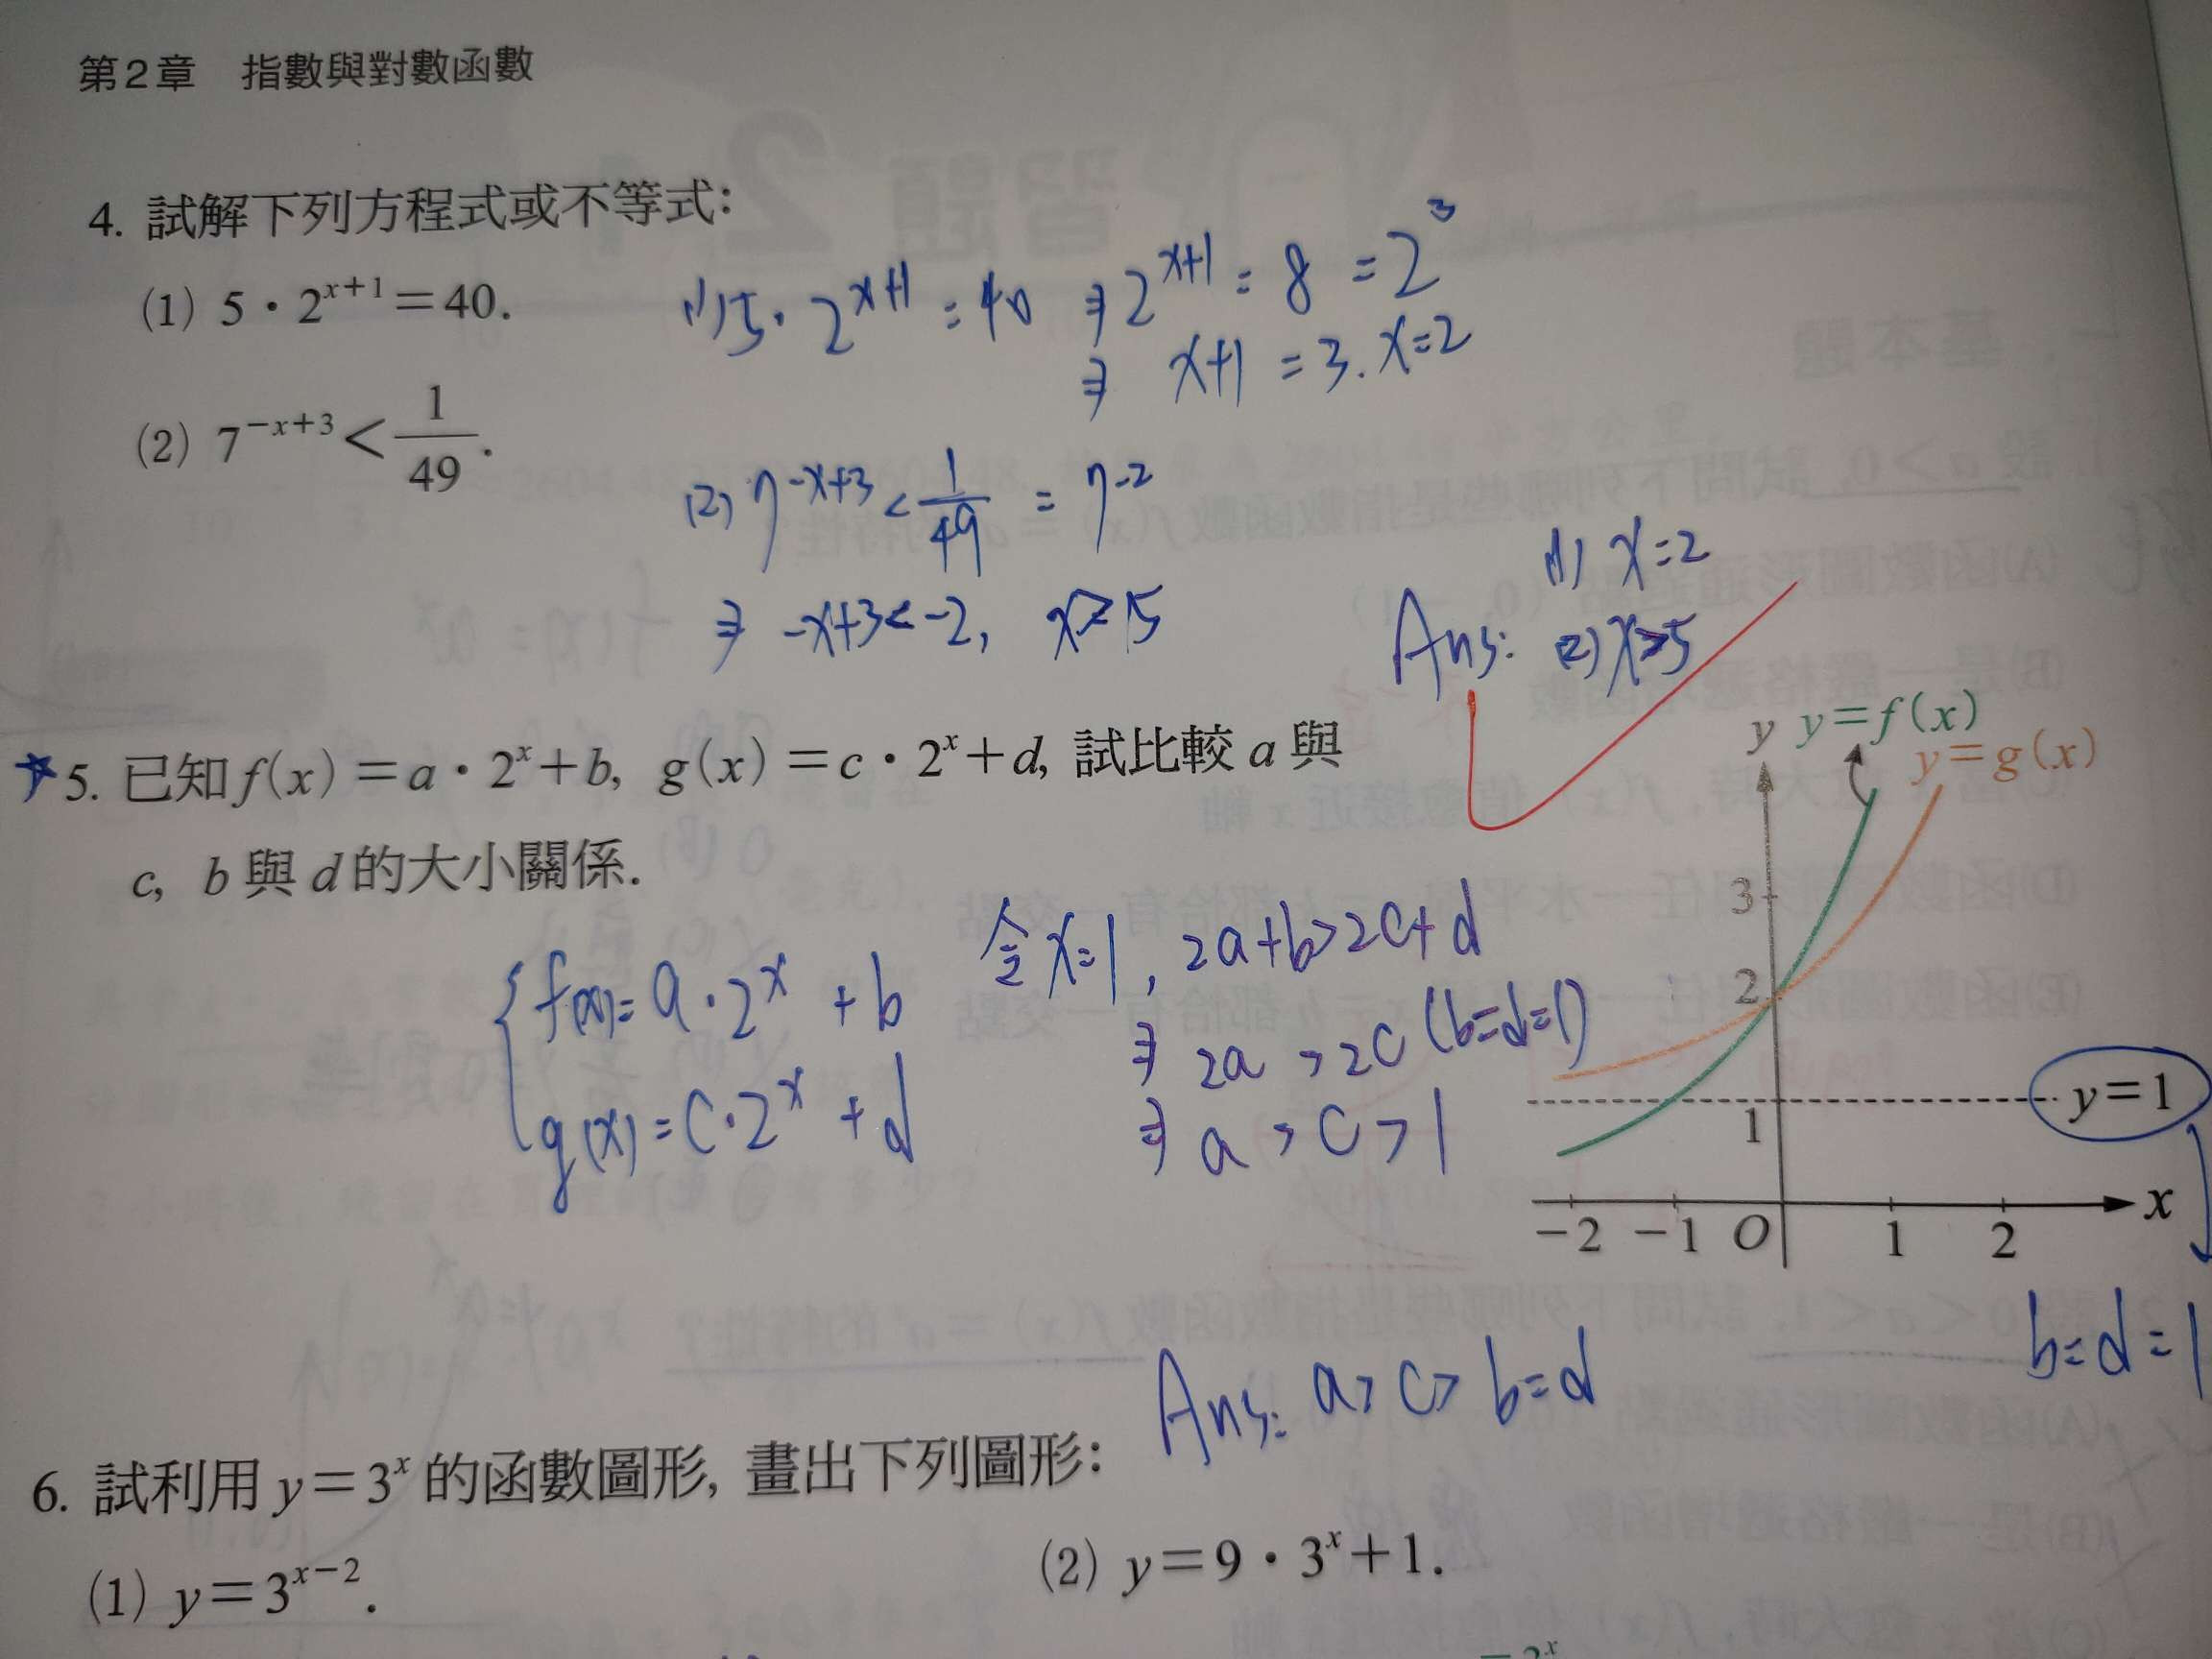 第2章 指數與對數函數
4. 試解下列方程式或不等式：
(1) 5·2^{x+1}=40.
(1) 5·2^{x+1}=40 ⇒ 2^{x+1}=8=2^3
⇒ x+1=3. x=2
(2) 7^{-x+3}<\frac{1}{49}.
(2) 7^{-x+3}<\frac{1}{49}=7^{-2}
⇒ -x+3<-2, x>5
(1) x=2
Ans: (2) x>5
5. 已知f(x)=a·2^x+b, g(x)=c·2^x+d, 試比較a與
c, b與d的大小關係.
{f(x)=a·2^x+b
g(x)=c·2^x+d
令x=1, 2a+b>2c+d
⇒ 2a>2c (b=d=1)
⇒ a>c>1
Ans: a>c>b=d
y y=f(x)
y=g(x)
3
2
y=1
1
-2 -1 O 1 2 x
b=d=1
6. 試利用y=3^x的函數圖形, 畫出下列圖形：
(1) y=3^{x-2}.
(2) y=9·3^x+1.